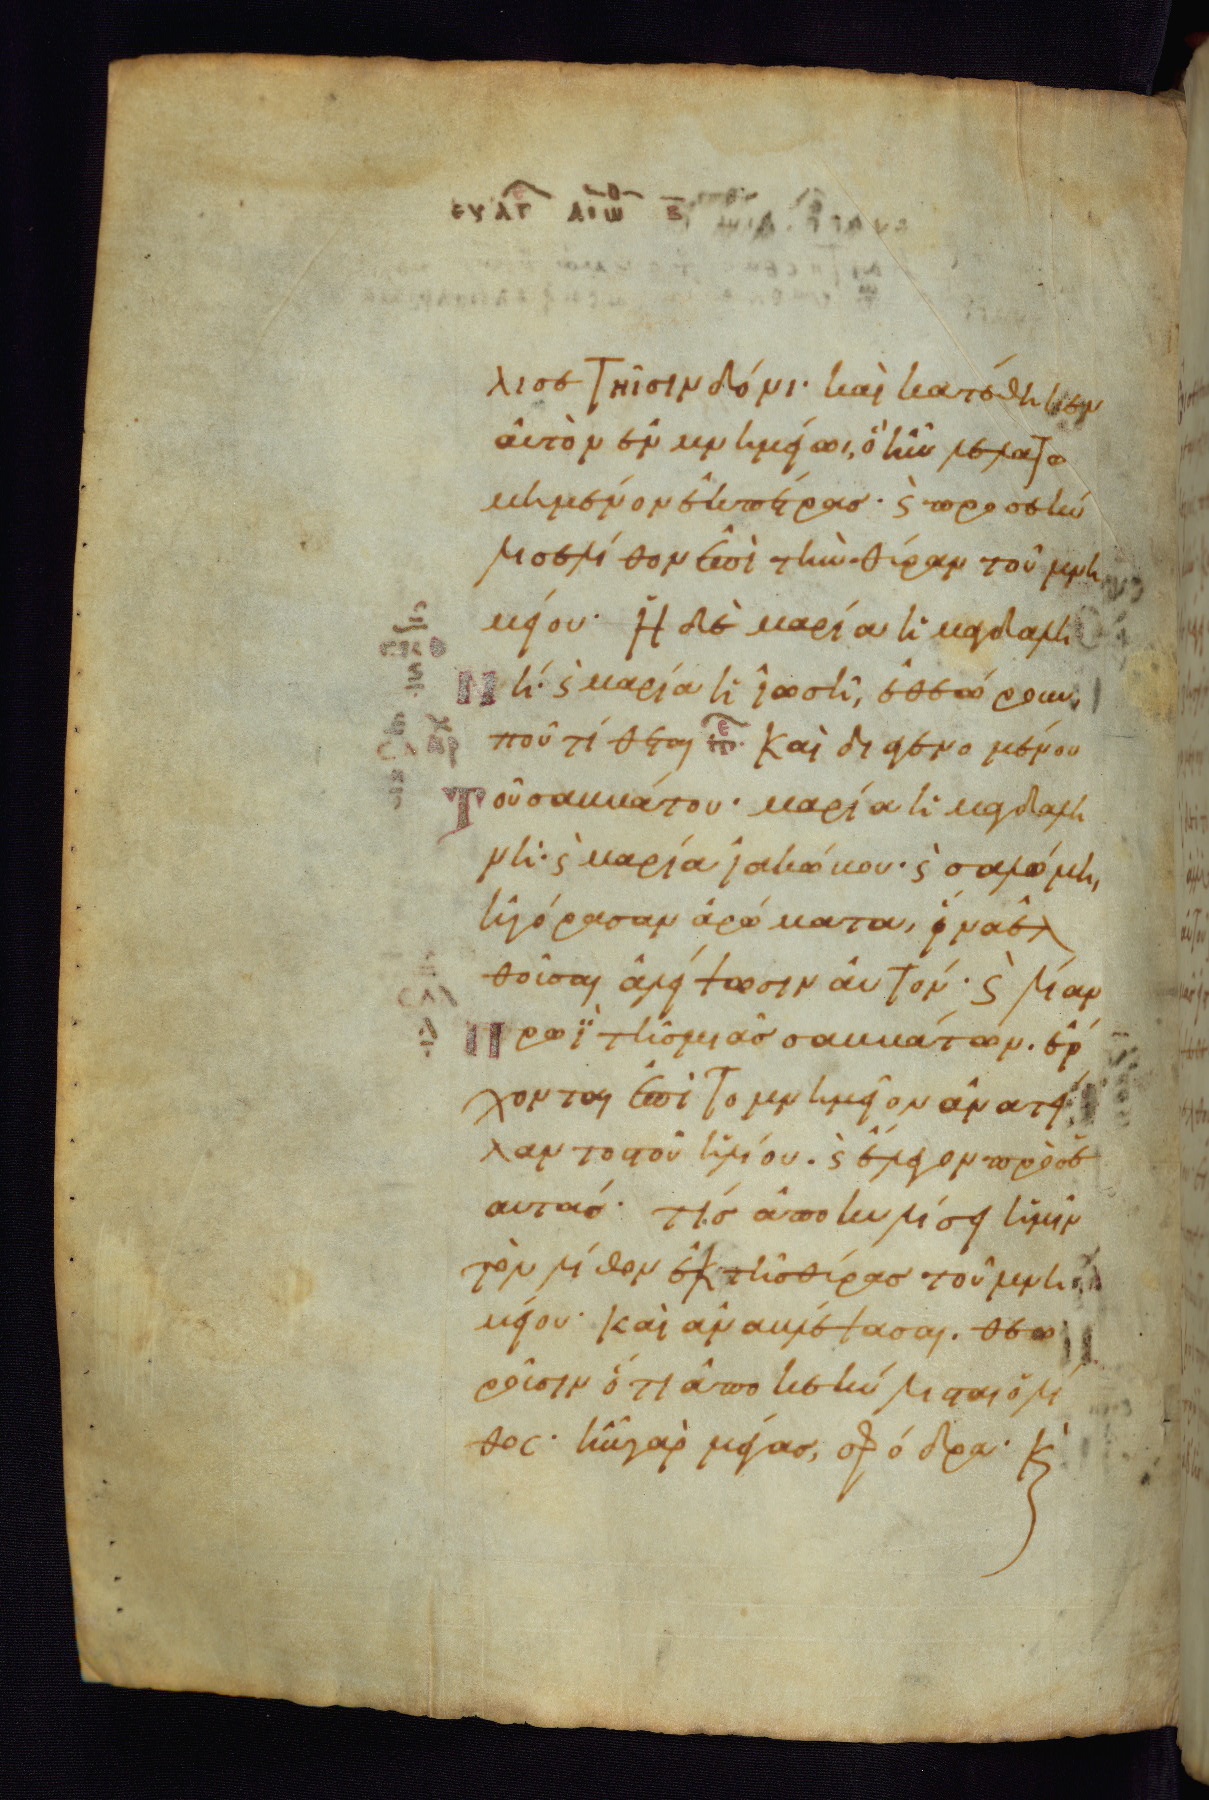 ευαγ εωθ β
λισε τῆ σινδόνι· καὶ κατέθηκεν
αὐτὸν ἐν μνημείωι, ὃ ἦν λελατο
μημένον ἐκ πέτρας· ϛ προσεκύ
λισε λίθον ἐπὶ τὴν θύραν τοῦ μνη
μείου· Ἡ δὲ μαρία ἡ μαγδαλη
Νὴ· ϛ μαρία ἡ ἰωσῆ, ἐθεώρουν,
ποῦ τίθεται Καὶ διαγενομένου
Τοῦ σαββάτου· μαρία ἡ μαγδαλη
νὴ· ϛ μαρία ἰακώβου· ϛ σαλώμη,
ἠγόρασαν ἀρώματα, ἵνα ἐλ
θοῦσαι ἀλείψωσιν αὐτόν· ϛ λίαν
Πρωῒ τῆς μιᾶς σαββάτων. ἔρ
χονται ἐπὶ το μνημεῖον ἀνατεί
λαντος τοῦ ἡλίου. ϛ ἔλεγον πρὸς ἑ
αυτάς· τίς ἀποκυλίσει ἡμῖν
τὸν λίθον ἐκ τῆς θύρας τοῦ μνη
μείου· Καὶ ἀναβλέψασαι. θεω
ροῦσιν ὅτι ἀποκεκύλισται ὁ λί
θος· ἦν γὰρ μέγας, σφόδρα· Κ